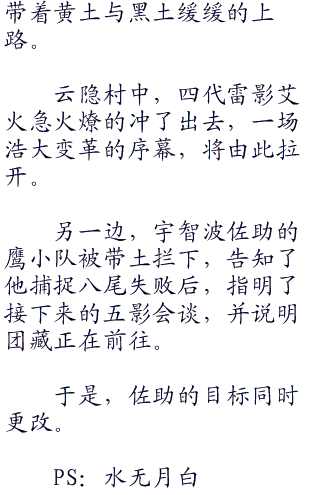 带着黄土与黑土缓缓的上
路。
云隐村中，四代雷影艾
火急火燎的冲了出去，一场
浩大变革的序幕，将由此拉
开。
另一边，宇智波佐助的
鹰小队被带土拦下，告知了
他捕捉八尾失败后，指明了
接下来的五影会谈，并说明
团藏正在前往。
于是，佐助的目标同时
更改。
PS：水无月白